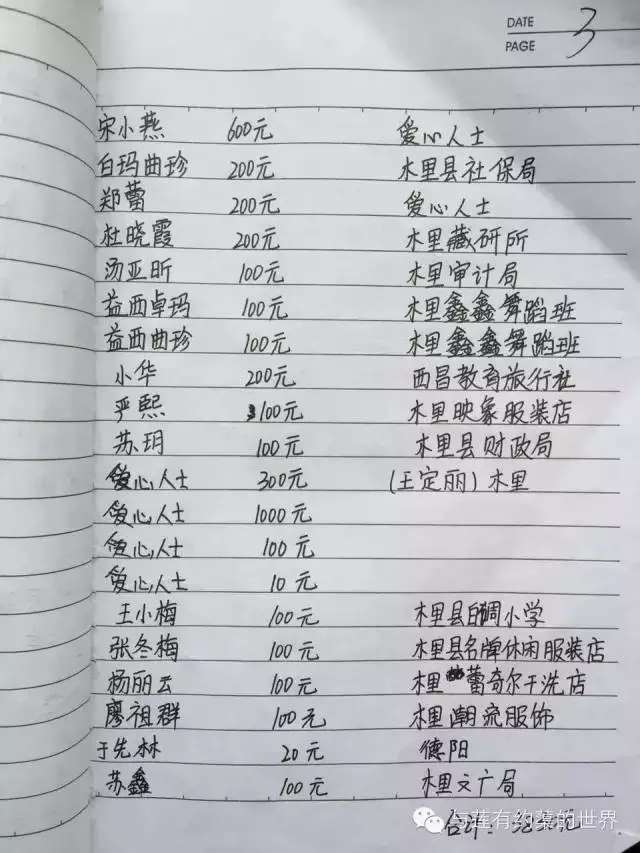 DATE
PAGE 3
宋小燕 600元 爱心人士
白玛曲珍 200元 木里县社保局
郑蕾 200元 爱心人士
杜晓霞 200元 木里藏研所
汤亚昕 100元 木里审计局
益西卓玛 100元 木里鑫鑫舞蹈班
益西曲珍 100元 木里鑫鑫舞蹈班
小华 200元 西昌教育旅行社
严熙 100元 木里映象服装店
苏玥 100元 木里县财政局
爱心人士 300元 (王定丽)木里
爱心人士 1000元
爱心人士 100元
爱心人士 10元
王小梅 100元 木里县白碉小学
张冬梅 100元 木里县名牌休闲服装店
杨丽云 100元 木里蕾奇尔干洗店
廖祖群 100元 木里潮流服饰
于先林 20元 德阳
苏鑫 100元 木里文广局
合计:
有约 的世界